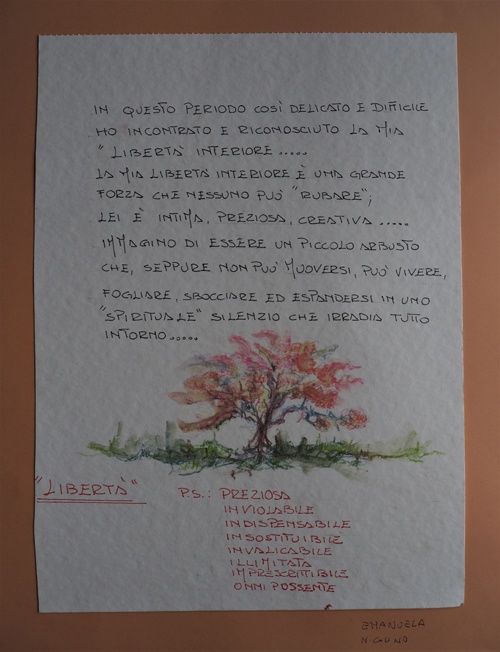 IN QUESTO PERIODO COSÌ DELICATO E DIFFICILE
HO INCONTRATO E RICONOSCIUTO LA MIA
"LIBERTÀ INTERIORE.....
LA MIA LIBERTÀ INTERIORE È UNA GRANDE
FORZA CHE NESSUNO PUÒ "RUBARE";
LEI È INTIMA, PREZIOSA, CREATIVA.....
IMMAGINO DI ESSERE UN PICCOLO ARBUSTO
CHE, SEPPURE NON PUÒ MUOVERSI, PUÒ VIVERE,
FOGLIARE, SBOCCIARE ED ESPANDERSI IN UNO
"SPIRITUALE" SILENZIO CHE IRRADIA TUTTO
INTORNO.....
"LIBERTÀ"
P.S.: PREZIOSA
INVIOLABILE
INDISPENSABILE
INSOSTITUIBILE
INVALICABILE
ILLIMITATA
IMPRESCRITTIBILE
ONNIPOSSENTE
EMANUELA